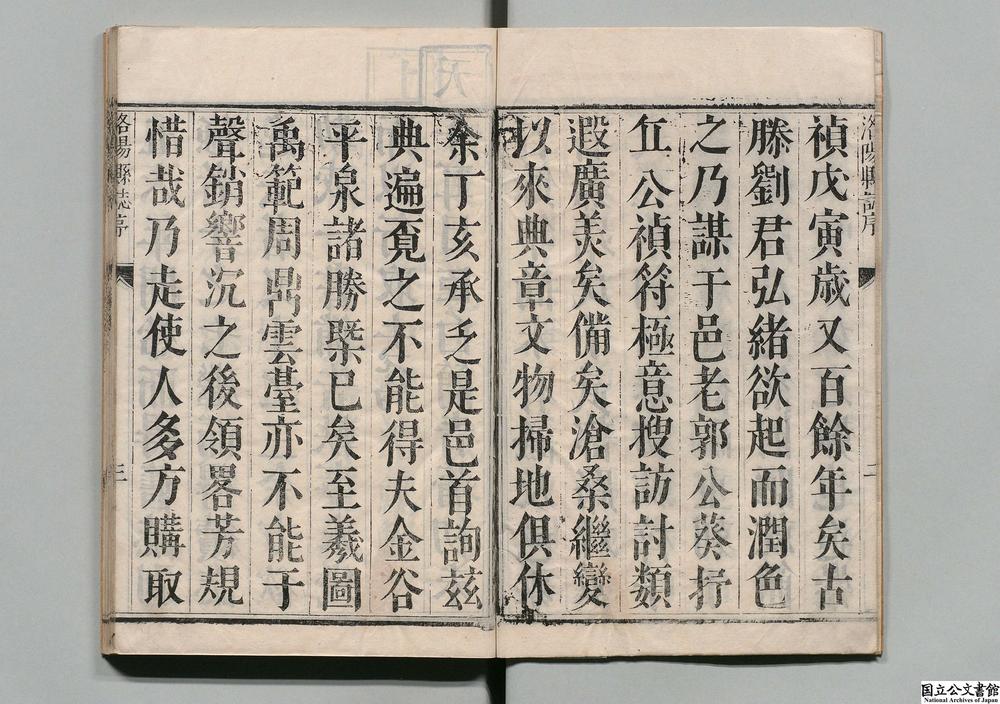 洛陽縣誌序
二
禎戊寅歲又百餘年矣古
滕劉君弘緒欲起而潤色
之乃謀于邑老郭公葵抒
丘公禎符極意搜訪討類
遐廣美矣備矣滄桑繼變
以來典章文物掃地俱休
余丁亥承乏是邑首詢茲
典遍覔之不能得夫金谷
平泉諸勝槩已矣至羲圖
禹範周鼎雲臺亦不能于
聲銷響沉之後領畧芳規
惜哉乃走使人多方購取
洛陽縣誌序
三
国立公文書館
National Archives of Japan